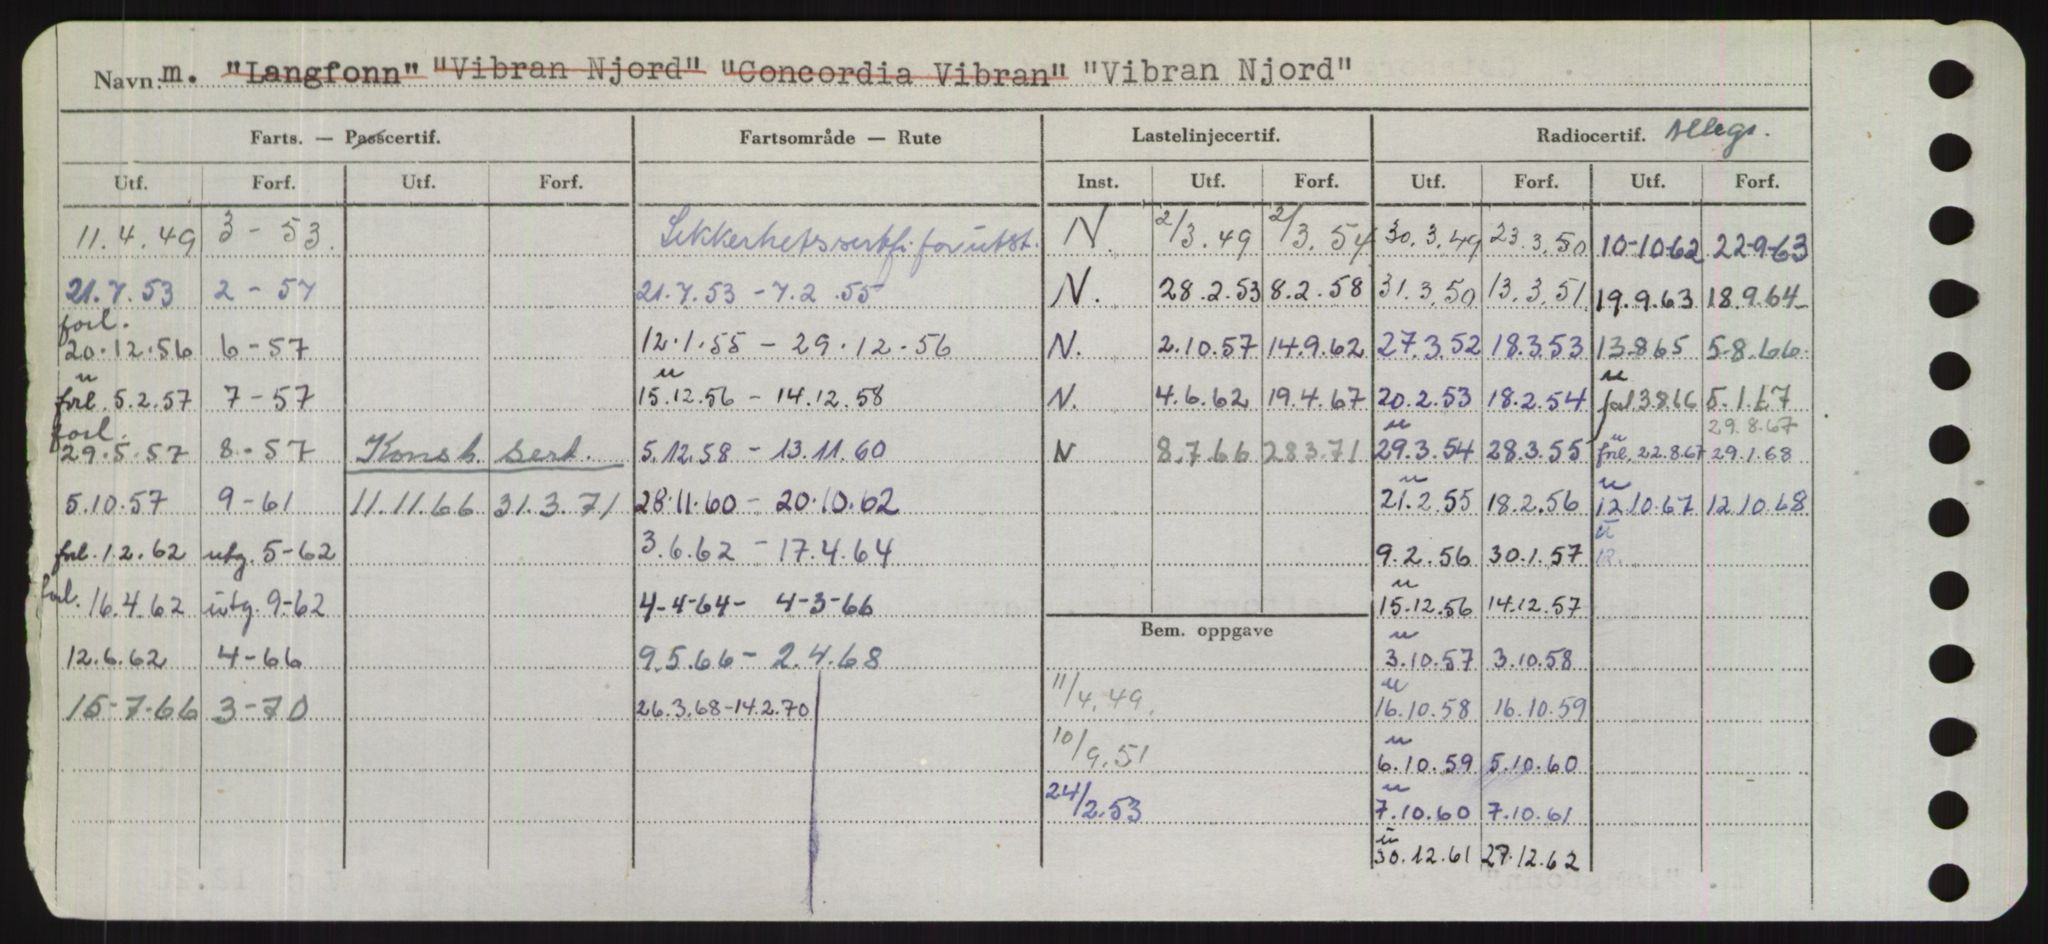 Navn: m. "Langfonn" "Vibran Njord" "Concordia Vibran" "Vibran Njord"
Farts. — Passcertif. Fartsområde — Rute Lastelinjecertif. Radiocertif.
Utf. Forf. Utf. Forf. Inst. Utf. Forf. Utf. Forf. Utf. Forf.
11.4.49 3 - 53. Sikkerhetssertfi. for utst. N. 2/3.49 2/3.54 30.3.49 23.3.50 10-10-62 22-9-63
21.7.53 2 - 57 21.7.53 - 7.2.55 N. 28.2.53 8.2.58 31.3.50 13.3.51 19.9.63 18.9.64
forl. 20.12.56 6 - 57 12.1.55 - 29.12.56 N. 2.10.57 14.9.62 27.3.52 18.3.53 13.8.65 5.8.66
u forl. 5.2.57 7 - 57 u 15.12.56 - 14.12.58 N. 4.6.62 19.4.67 20.2.53 18.2.54 u forl 3.8.66 5.1.67
29.8.67
forl. 29.5.57 8 - 57 Konst. sert. 5.12.58 - 13.11.60 N 8.7.66 28.3.71 u 29.3.54 28.3.55 u forl. 22.8.67 29.1.68
5.10.57 9 - 61 11.11.66 31.3.71 28.11.60 - 20.10.62 u 21.2.55 18.2.56 u 12.10.67 12.10.68
forl. 1.2.62 utg. 5-62 3.6.62 - 17.4.64 9.2.56 30.1.57 u 12.
forl. 16.4.62 utg. 9-62 4-4-64 - 4-3-66 u 15.12.56 14.12.57
Bem. oppgave
12.6.62 4-66 9.5.66 - 2.4.68 u 3.10.57 3.10.58
15-7-66 3-70 26.3.68 - 14.2.70 11/4.49. u 16.10.58 16.10.59
10/9.51 u 6.10.59 5.10.60
24/2.53 u 7.10.60 7.10.61
u 30.12.61 27.12.62